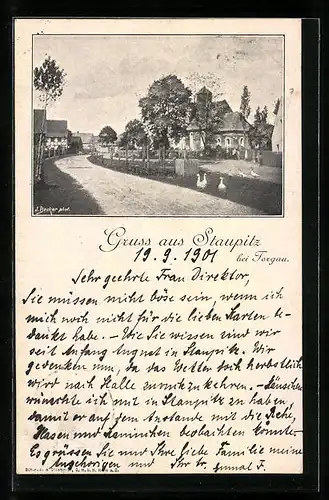 J. Becker phot.
Gruss aus Staupitz
bei Torgau.
19. 9. 1901
Sehr geehrte Frau Direktor,
Sie müssen nicht böse sein, wenn ich
mich noch nicht für die lieben Karten be-
dankt habe. - Wie Sie wissen sind wir
seit Anfang August in Staupitz. Wir
gedenken nun, da das Wetter sich herbstlich
wird nach Halle zurück zu kehren. -
wünschte ich mit in Staupitz zu haben,
damit er auf dem Anstande mit die Rehe,
Hasen und Kaninchen beobachten könnte.
Es grüssen Sie und Ihre liebe Familie meine
Angehörigen und Ihr